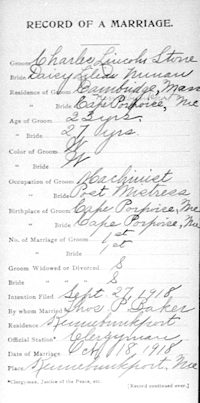 RECORD OF A MARRIAGE.
Groom Charles Lincoln Stone
Bride Daisy Lilean Nunan
Residence of Groom Cambridge, Mass
" Bride Cape Porpoise, Me
Age of Groom 23 yrs
" Bride 27 yrs
Color of Groom W
" Bride W
Occupation of Groom Machinist
" Bride Post Mistress
Birthplace of Groom Cape Porpoise, Me
" Bride Cape Porpoise, Me
No. of Marriage of Groom 1st
" " Bride 1st
Groom Widowed or Divorced S
Bride " " " S
Intention Filed Sept. 27, 1918
By whom Married Thos. P. Baker
Residence Kennebunkport
Official Station* Clergyman
Date of Marriage Oct 18, 1918
Place Kennebunkport, Me
*Clergyman, Justice of the Peace, etc. [Record continued over.]